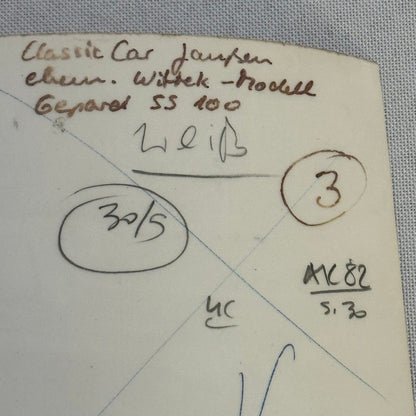 Classic Car Jansen
ehem. Wittek-Modell
Gepard SS 100
Weiß
3
30/5
AK 82
S. 30
4C